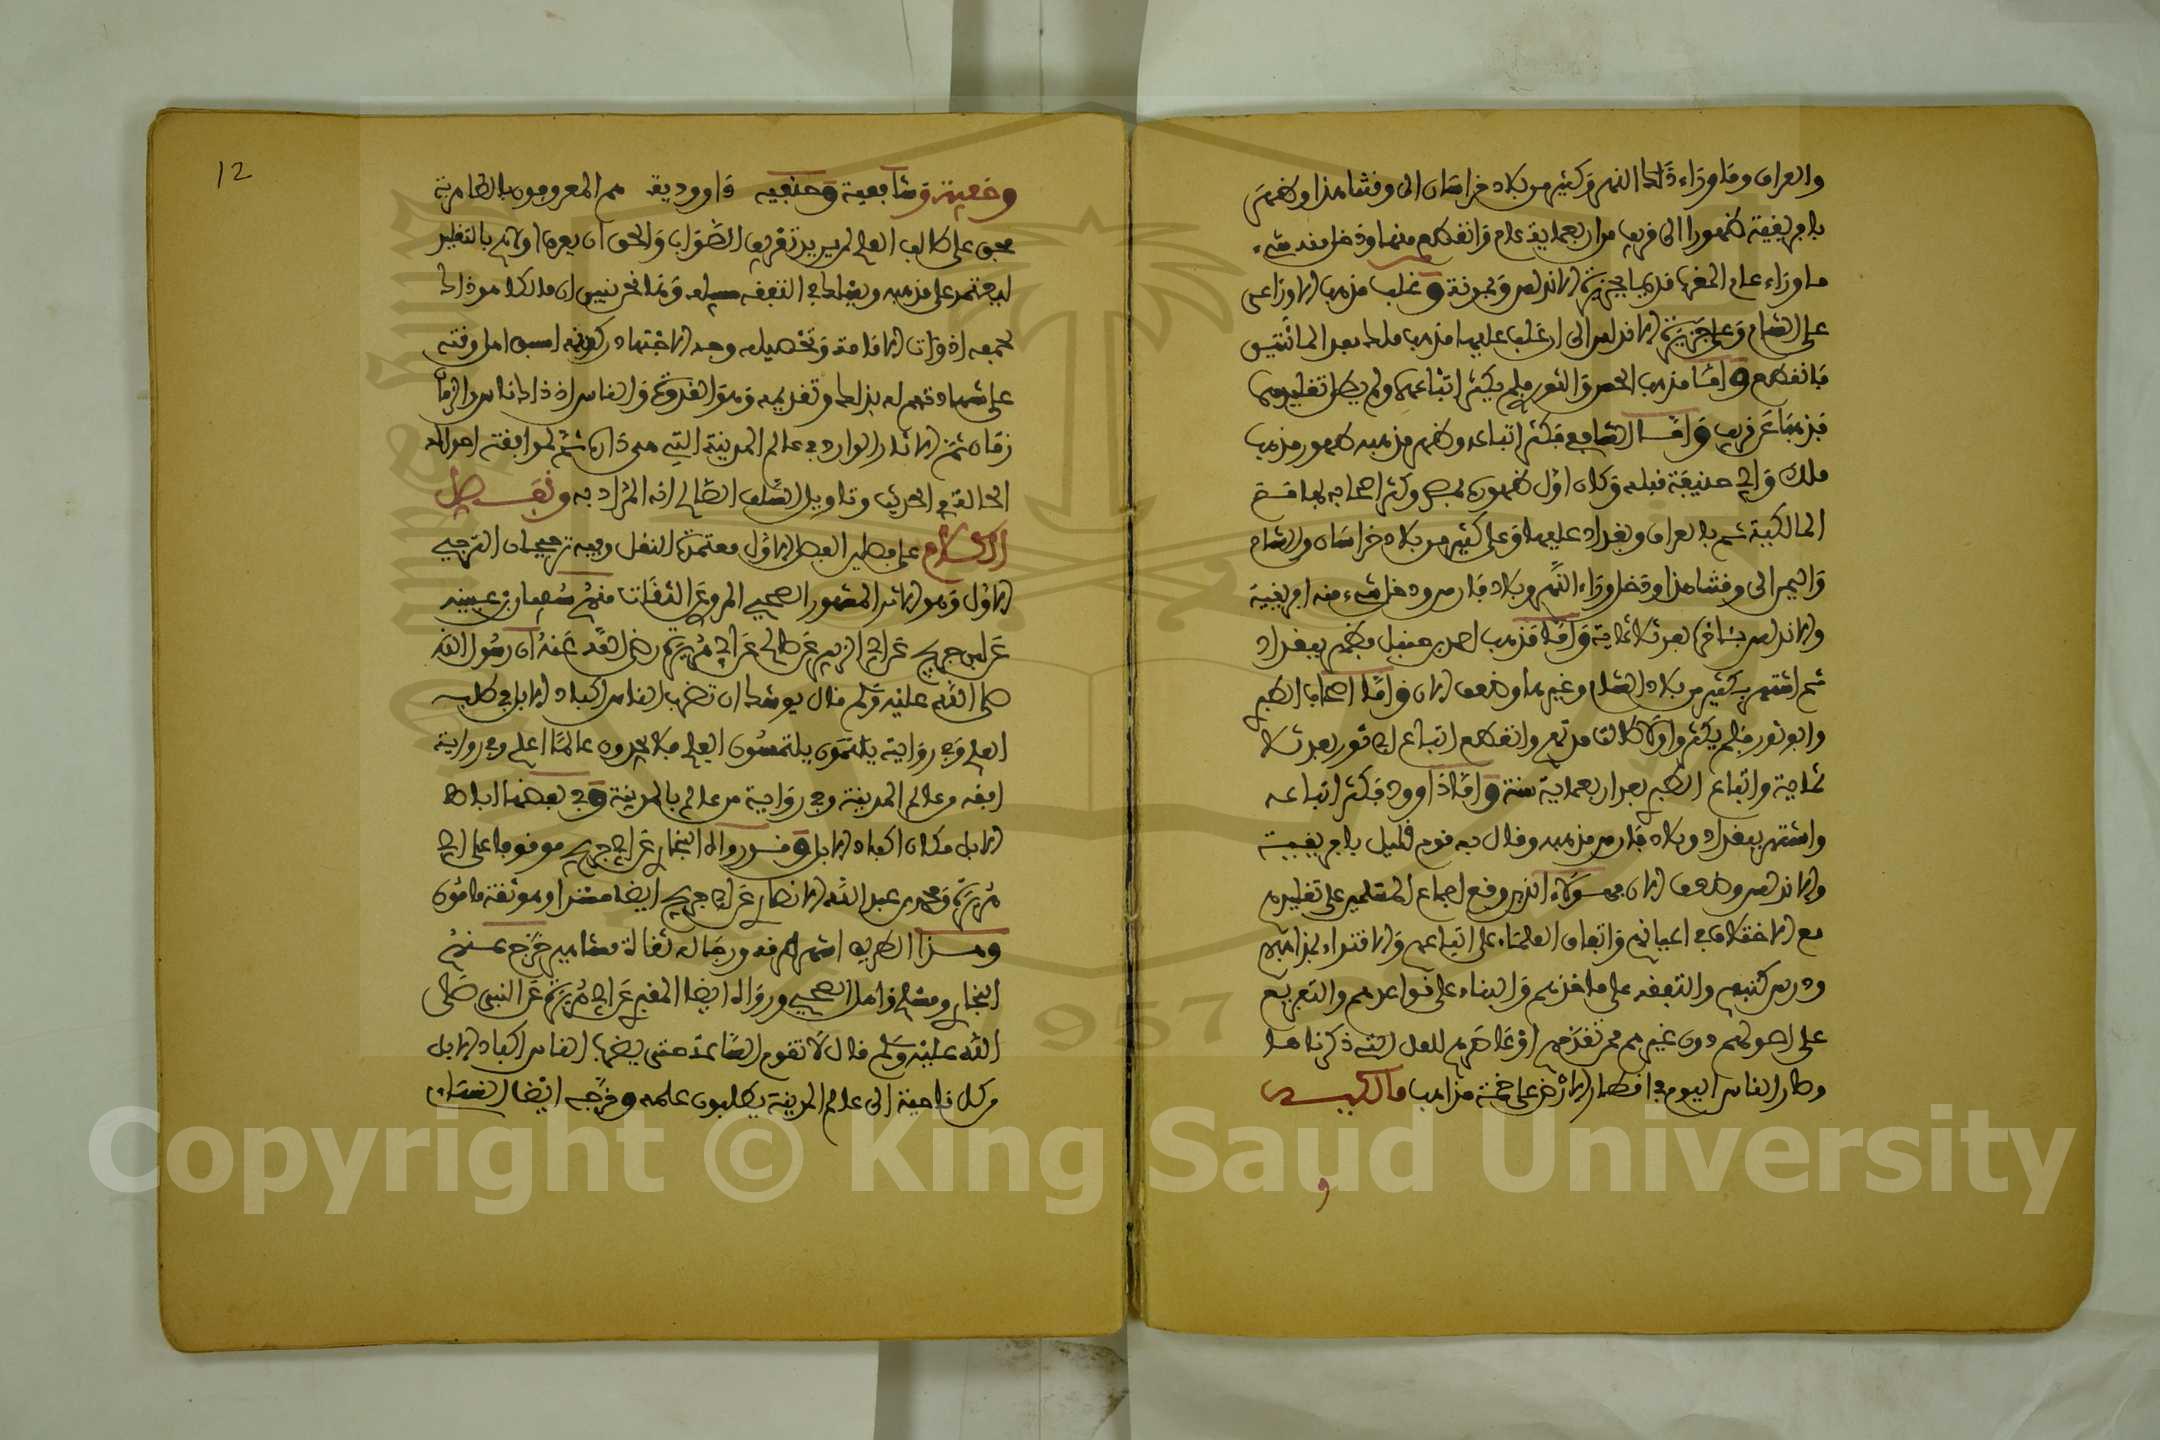 والعراق وما وراء ذلك النهر وكثير من بلاد خراسان الى وقتنا هذا وظهر
بافريقية ظهورا الى قريب من اربعماية عام وانقطع منها ودخل منه شيء
ما وراء عام المغرب قديما بجزيرة الاندلس وبمدينة وغلب مذهب الاوزاعي
على الشام وعلى جزيرة الاندلس الى ان غلب عليها مذهب ملك بعد المائتين
فانقطع واما مذهب الحسن والثوري فلم يكثر اتباعهما ولم يطل تقليدهما
فذهبا عن قريب واما الشافعي فكثر اتباعه وظهر مذهبه ظهور مذهب
ملك وابي حنيفة قبله وكان اول ظهوره بمصر وكثر اصحابه بها مع
المالكية ثم بالعراق وبغداد عليها وعلى كثير من بلاد خراسان والشام
واليمن الى وقتنا هذا ودخل وراء النهر وبلاد فارس ودخل شيء منه افريقية
والاندلس بئاخرة بعد ثلاثماية واما مذهب احمد بن حنبل فظهر ببغداد
ثم اشتهر بكثير من بلاد الشام وغيرها وضعف الان واما اصحاب الطبري
وابو ثور فلم يكثروا ولا طالت مدتهم وانقطع اتباع ابي ثور بعد ثلا
ثماية واتباع الطبري بعد اربعماية سنة واما داوود فكثر اتباعه
واشتهر ببغداد وبلاد فارس مذهبه وقال به قوم قليل بافريقية
والاندلس وضعف الان فهؤلاء الذين وقع اجماع المسلمين على تقليدهم
مع الاختلاف في اعيانهم واتفاق العلماء على اتباعهم والاقتداء بمذاهبهم
ودرس كتبهم والتفقه على ماخذهم والبناء على قواعدهم والتفريع
على اصولهم دون غيرهم ممن تقدمهم او عاصرهم للعلل التي ذكرناها
وصار الناس اليوم في اقطار الارض على خمسة مذاهب مالكية
و
12
وحنبلية وشافعية وحنفية داوودية هم المعروفون بالظاهرية
فحق على طالب العلم يريد تعريف الصواب والحق ان يعرف اولاهم بالتقليد
ليعتمد على مذهبه ويسلك في التفقه سبيله وها نحن نبين ان مالكا هو ذلك
لجمعه ادوات الامامة وتحصيله وجه الاجتهاد وكونه اسبق اهل وقته
على شهادتهم له بذلك وتقديمه وهو القدوة والناس اذ ذاك ناس والزمان
زمان ثمن الاثار الوارد في عالم المدينة التي هي داره ثم لموافقة احواله
الحالة في الحديث وتاويل السلف الصالح انه المراد به ونفصل
الكلام على فصلين الفصل الاول معتمدة النقل وفيه ترجيحان الترجيح
الاول وهو الاثر المشهور الصحيح المروي عن الثقات منهم سفيان بن عيينة
عن ابن جريج عن ابي الزبير عن ابي صالح عن ابي هريرة رضي الله عنه ان رسول الله
صلى الله عليه وسلم قال يوشك ان تضرب الناس اكباد الابل في طلب
العلم وفي رواية يلتمسون العلم فلا يجدون عالما اعلم وفي رواية
افقه وعالم المدينة وفي رواية من عالم بالمدينة وفي بعضها اباط
الابل مكان اكباد الابل وقد رواه البخاري عن ابن جريج موقوفا على ابي
هريرة ومحمد بن عبد الله الانصاري عن ابن جريج ايضا مسندا وهو ثقة مامون
وهذا الطريق اشهر طرقه ورجاله ثقات مشاهير خرج عنهم
البخاري ومسلم واهل الصحيح ورواه ايضا المقبري عن ابي هريرة عن النبي صلى
الله عليه وسلم قال لا تقوم الساعة حتى يضرب الناس اكباد الابل
من كل ناحية الى عالم المدينة يطلبون علمه وخرجه ايضا النسائي
Copyright © King Saud University
1957